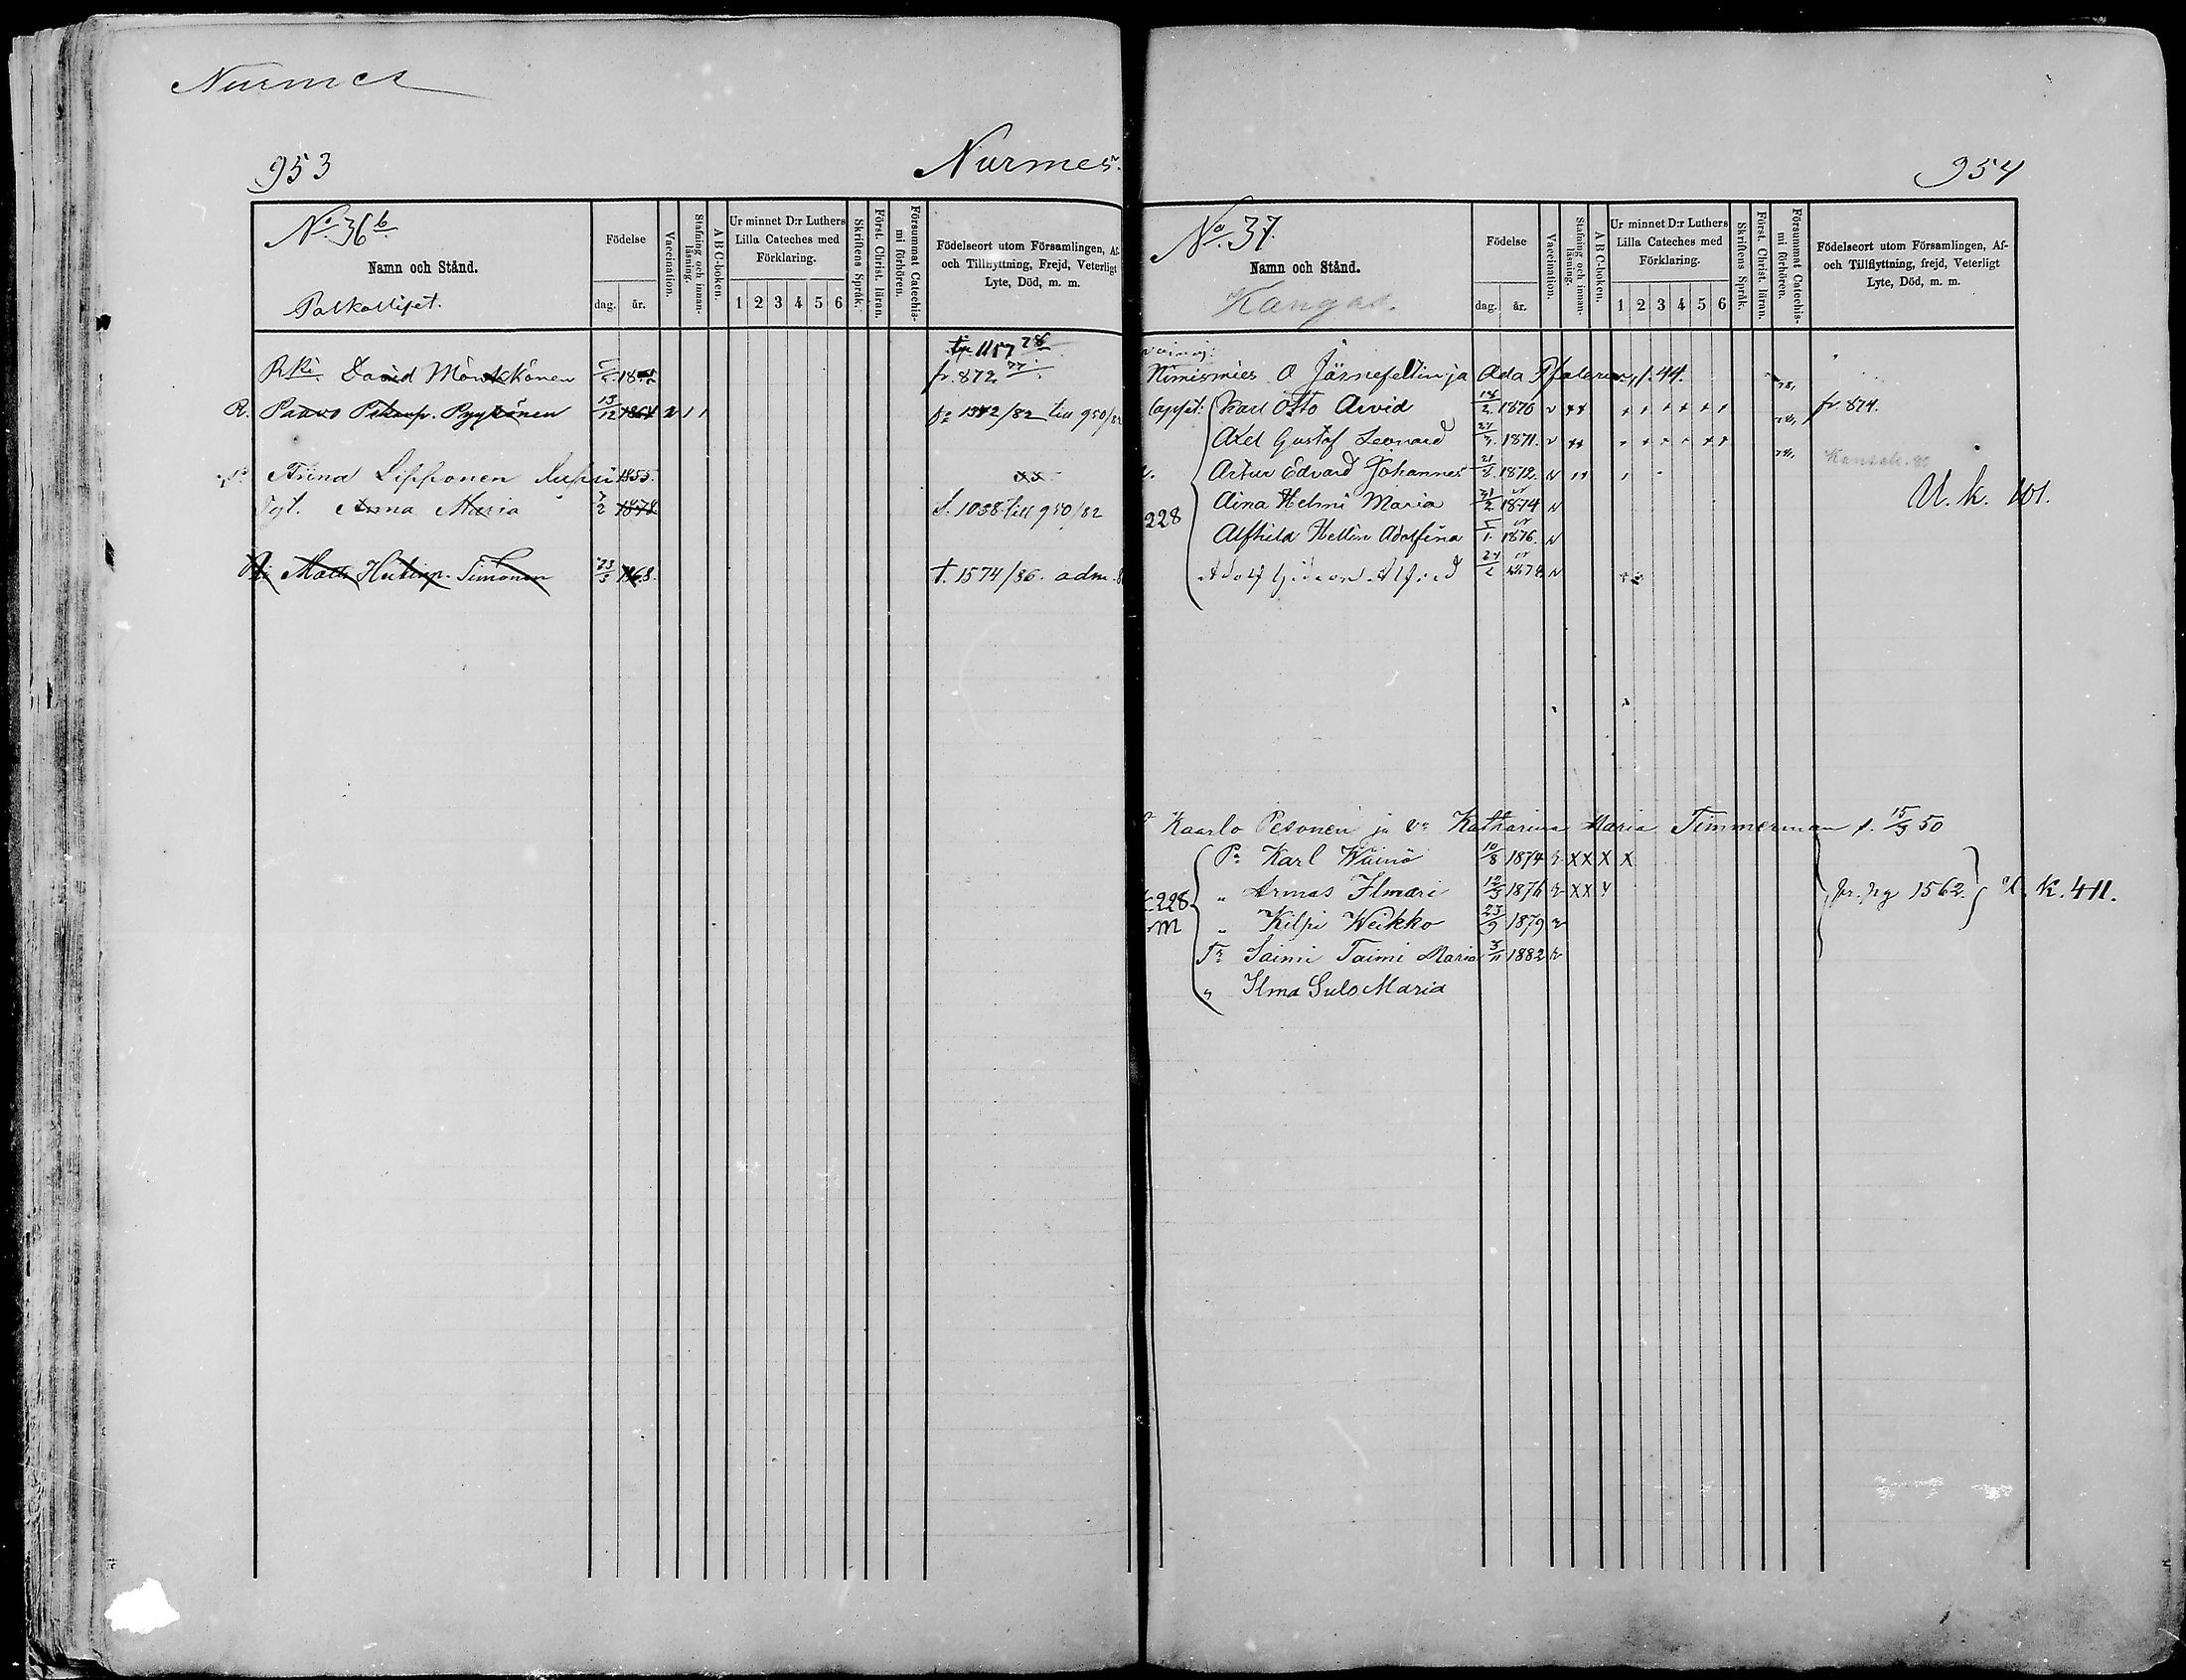 Nurmes
953
Nurmes.
No. 36 b.
Namn och Stånd.
Palkolliset.
Födelse
dag. år.
Vaccination.
Stafning och innanläsning.
A B C-boken.
Ur minnet D:r Luthers Lilla Cateches med Förklaring.
1 2 3 4 5 6
Skriftens Språk.
Först. Christ. läran.
Försummat Catechismi förhören.
Födelseort utom Församlingen, Af-
och Tillflyttning, Frejd, Veterligt
Lyte, Död, m. m.
1157 78
Rki. David Mönkkönen fr. 872 77
R. Paavo Pykönen 13/12 1864 1342/82 till 950/82
Lipponen 1855
Anna Maria 7/2 1878 f. 1038 till 950/82
Matts Simonen 23/3 1868 t. 1574/86. adm.
954
No. 37.
Namn och Stånd.
Kangas.
Födelse
dag. år.
Vaccination.
Stafning och innanläsning.
A B C-boken.
Ur minnet D:r Luthers Lilla Cateches med Förklaring.
1 2 3 4 5 6
Skriftens Språk.
Först. Christ. läran.
Försummat Catechismi förhören.
Födelseort utom Församlingen, Af-
och Tillflyttning, frejd, Veterligt
Lyte, Död, m. m.
Nimismies O Järnefeltin ja Ada f. 44.
lapset: Karl Otto Arvid 1870 fr. 874.
Axel Gustaf Leonard 1871.
Artur Edvard Johannes 21/8 1872.
Aina Helmi Maria 21/2 1874 U. k. 101.
228
Alfhild Hellin Adolfina 5/1 1876.
Adolf Gideon Alfred
Kaarlo Pesonen ja vo Katharina Maria Timmerman f. 15/9 50
Pa Karl Wäinö 10/8 1874 X X X X
" Armas Ilmari 12/3 1876 X X fr. ng 1562. U. K. 411.
228
" Kilpi Weikko 23/9 1879
Tr Saimi Taimi Maria 3/11 1882
" Ilma Sulo Maria